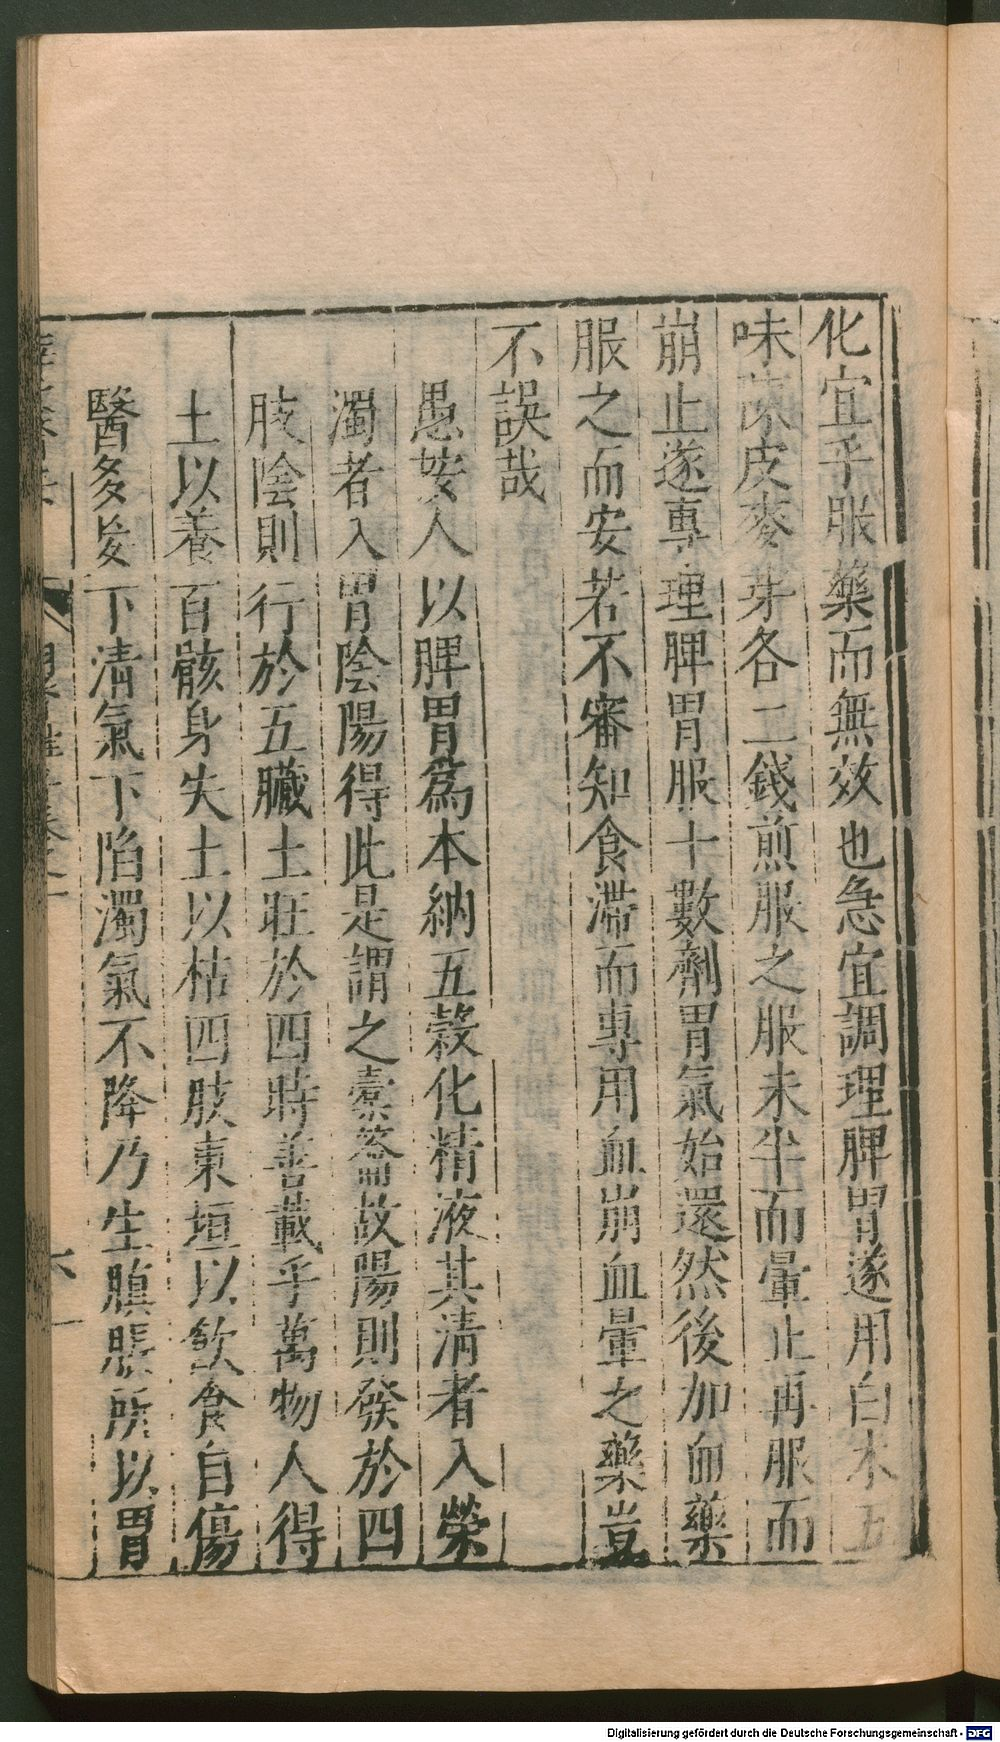 化宜乎服藥而無效也急宜調理脾胃遂用白术五
味陳皮麥芽各二錢煎服之服未半而暈止再服而
崩止遂專理脾胃服十數劑胃氣始還然後加血藥
服之而安若不審知食滯而專用血崩血暈之藥豈
不誤哉
愚按人以脾胃為本納五穀化精液其清者入榮
濁者入胃陰陽得此是謂之橐籥故陽則發於四
肢陰則行於五臟土旺於四時善載乎萬物人得
土以養百骸身失土以枯四肢東垣以飲食自傷
醫多妄下清氣下陷濁氣不降乃生䐜脹所以胃
六
Digitalisierung gefördert durch die Deutsche Forschungsgemeinschaft - DFG